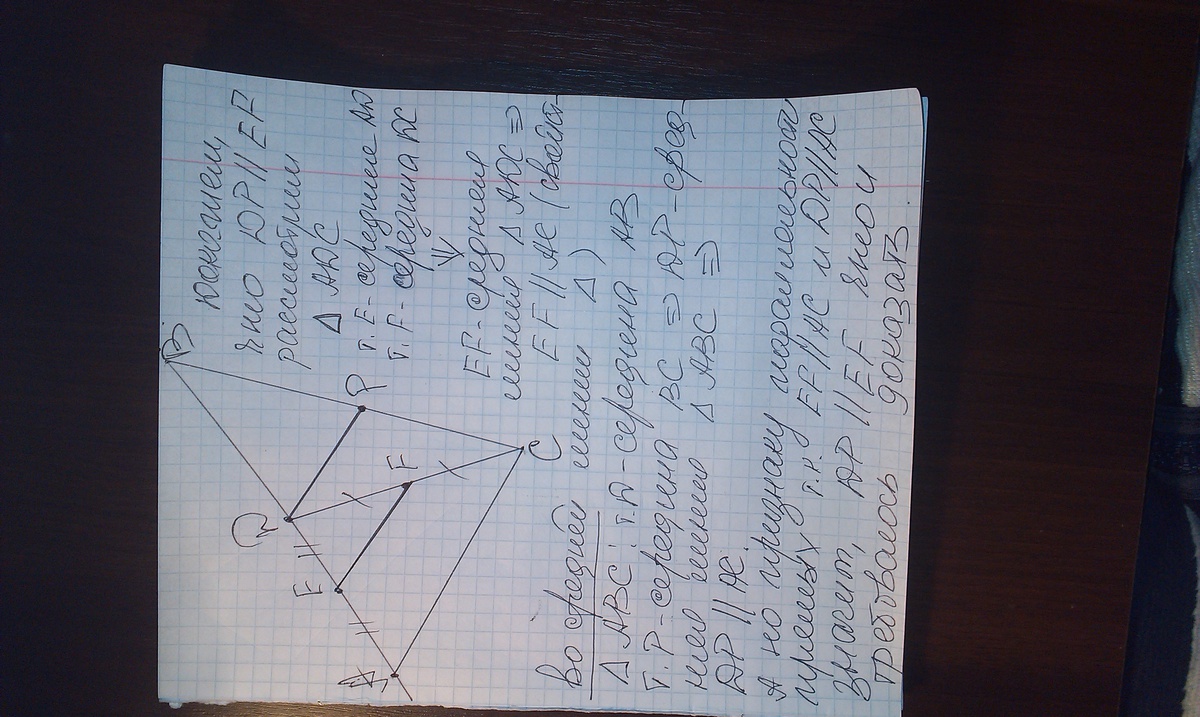 Докажем,
что DP || EF
рассмотрим
Δ ADC
т. E - середине AD
т. F - середина DC
⇓
EF - средняя
линия Δ ADC ⇒
EF || AC (свойст-
во средней линии Δ)
Δ ABC: т. D - середина AB
т. P - середина BC ⇒ DP - сред-
няя линию Δ ABC ⇒
DP || AC.
А по признаку параллельности
прямых т.к. EF || AC и DP || AC
значит, DP || EF что и
требовалось доказать
B
D
P
E
F
A
C